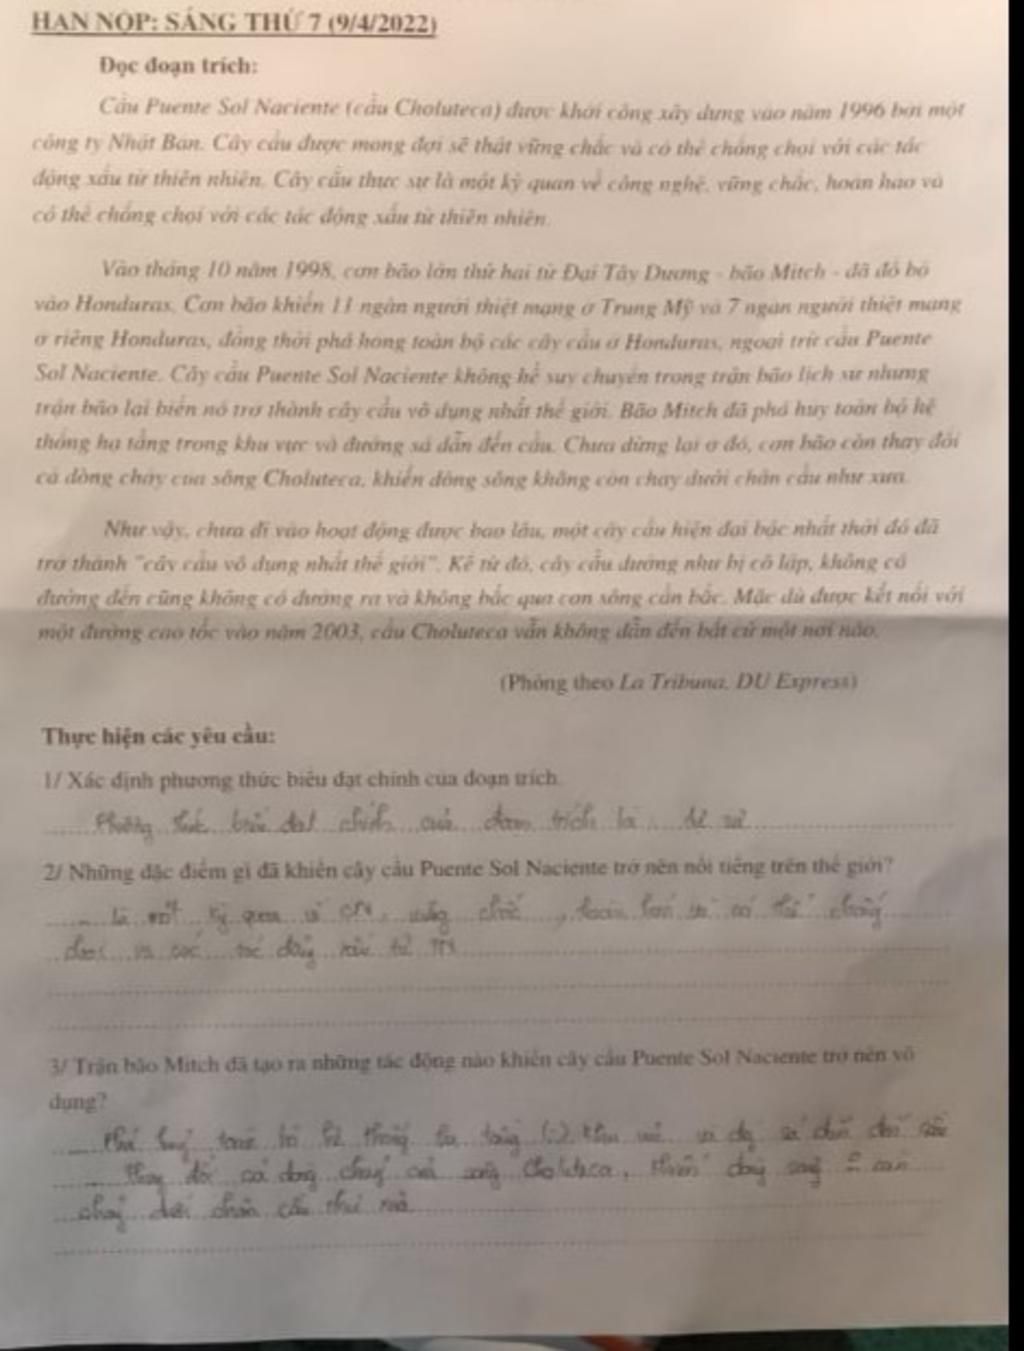 HẠN NỘP: SÁNG THỨ 7 (9/4/2022)
Đọc đoạn trích:
Cầu Puente Sol Naciente (cầu Choluteca) được khởi công xây dựng vào năm 1996 bởi một
công ty Nhật Bản. Cây cầu được mong đợi sẽ thật vững chắc và có thể chống chọi với các tác
động xấu từ thiên nhiên. Cây cầu thực sự là một kỳ quan về công nghệ, vững chắc, hoàn hảo và
có thể chống chọi với các tác động xấu từ thiên nhiên.
Vào tháng 10 năm 1998, cơn bão lớn thứ hai từ Đại Tây Dương - bão Mitch - đã đổ bộ
vào Honduras. Cơn bão khiến 11 ngàn người thiệt mạng ở Trung Mỹ và 7 ngàn người thiệt mạng
ở riêng Honduras, đồng thời phá hỏng toàn bộ các cây cầu ở Honduras, ngoại trừ cầu Puente
Sol Naciente. Cây cầu Puente Sol Naciente không hề suy chuyển trong trận bão lịch sử nhưng
trận bão lại biến nó trở thành cây cầu vô dụng nhất thế giới. Bão Mitch đã phá huỷ toàn bộ hệ
thống hạ tầng trong khu vực và đường sá dẫn đến cầu. Chưa dừng lại ở đó, cơn bão còn thay đổi
cả dòng chảy của sông Choluteca, khiến dòng sông không còn chảy dưới chân cầu như xưa.
Như vậy, chưa đi vào hoạt động được bao lâu, một cây cầu hiện đại bậc nhất thời đó đã
trở thành "cây cầu vô dụng nhất thế giới". Kể từ đó, cây cầu dường như bị cô lập, không có
đường đến cũng không có đường ra và không bắc qua con sông cần bắc. Mặc dù được kết nối với
một đường cao tốc vào năm 2003, cầu Choluteca vẫn không dẫn đến bất cứ một nơi nào.
(Phỏng theo La Tribuna, DU Express)
Thực hiện các yêu cầu:
1/ Xác định phương thức biểu đạt chính của đoạn trích.
Phương thức biểu đạt chính của đoạn trích là tự sự
2/ Những đặc điểm gì đã khiến cây cầu Puente Sol Naciente trở nên nổi tiếng trên thế giới?
- là một kỳ quan về CN, vững chắc, hoàn hảo và có thể chống
chọi với các tác động xấu từ TN
3/ Trận bão Mitch đã tạo ra những tác động nào khiến cây cầu Puente Sol Naciente trở nên vô
dụng?
- Phá huỷ toàn bộ hệ thống hạ tầng (-) khu vực và đg sá dẫn đến cầu
- thay đổi cả dòng chảy của sông Choluteca, khiến dòng sông còn
chảy dưới chân cầu như xưa